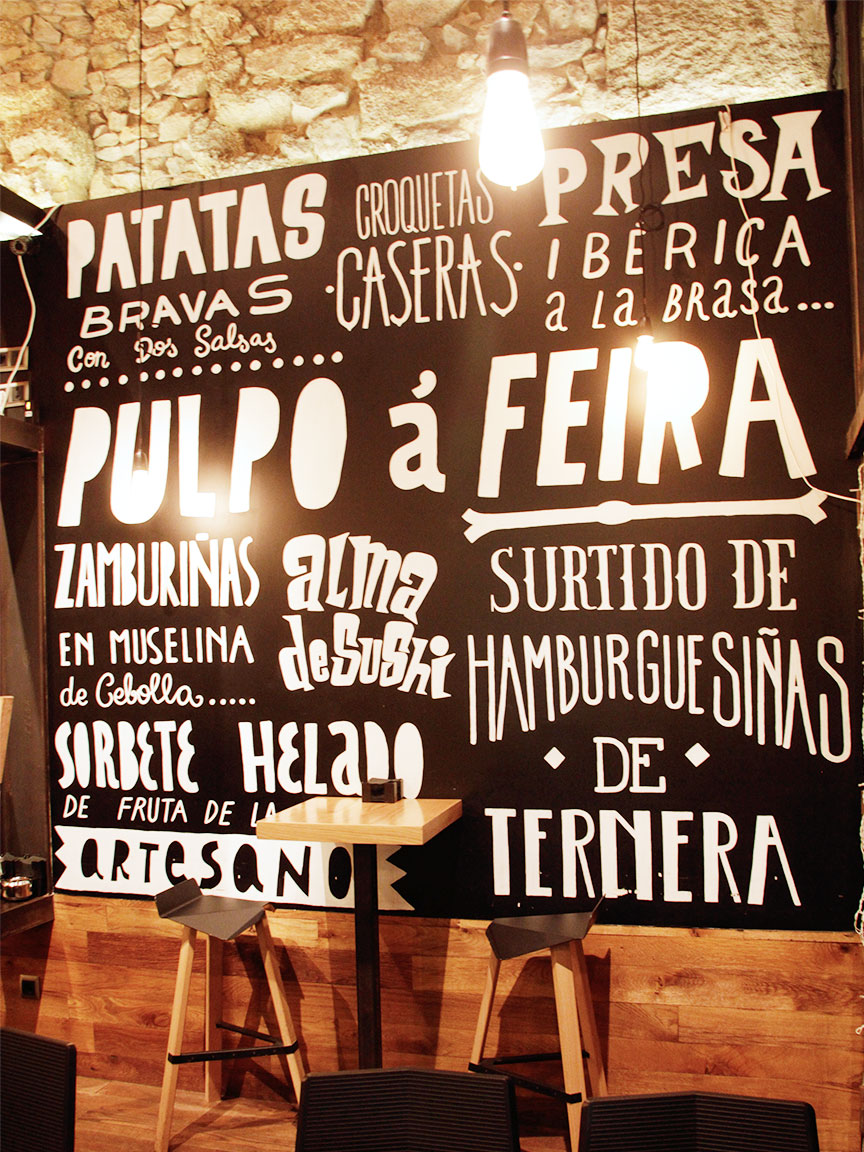 PATATAS
BRAVAS
Con Dos Salsas
CROQUETAS
·CASERAS·
PRESA
IBÉRICA
a La BRasa...
PULPO á FEIRA
ZAMBURIÑAS
EN MUSELINA
de Cebolla.....
alma
de Sushi
SURTIDO DE
HAMBURGUESIÑAS
DE
TERNERA
SORBETE HELADO
DE FRUTA DE LA
aRTesaNO